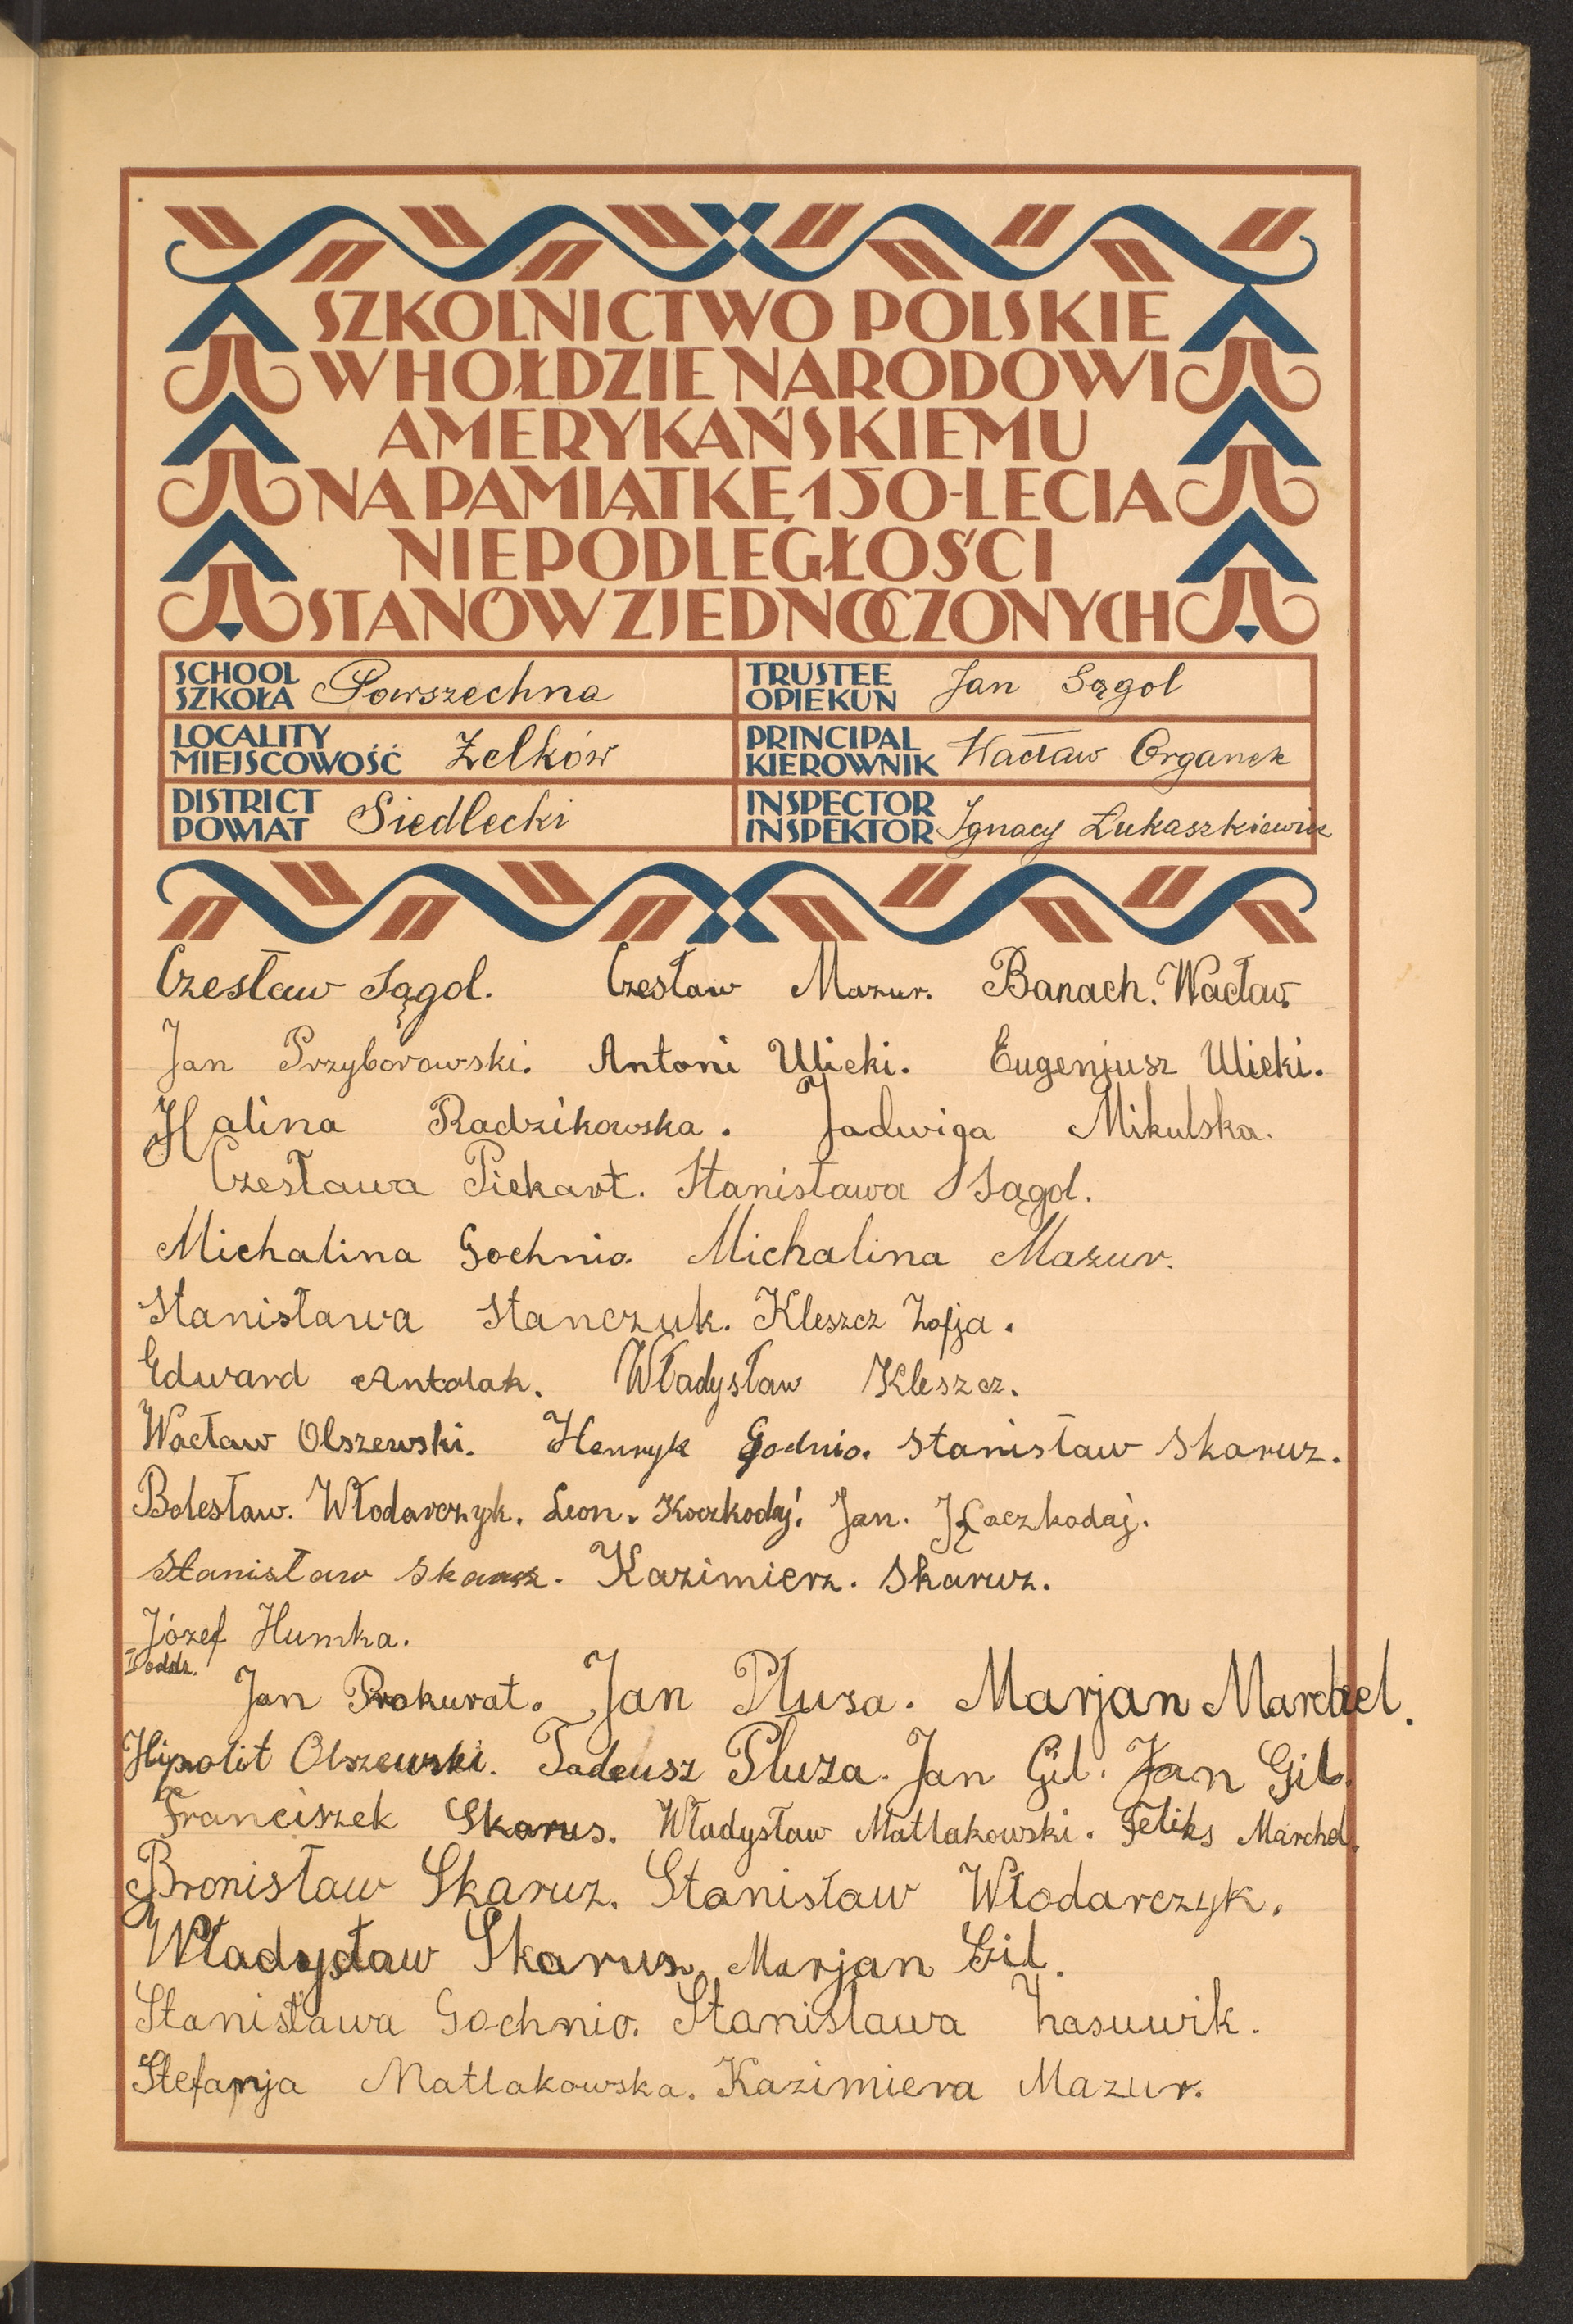 SZKOLNICTWO POLSKIE
W HOŁDZIE NARODOWI
AMERYKAŃSKIEMU
NA PAMIĄTKĘ 150-LECIA
NIEPODLEGŁOŚCI
STANÓW ZJEDNOCZONYCH
SCHOOL
SZKOŁA Powszechna
TRUSTEE
OPIEKUN Jan Sągol
LOCALITY
MIEJSCOWOŚĆ Żelków
PRINCIPAL
KIEROWNIK Wacław Organek
DISTRICT
POWIAT Siedlecki
INSPECTOR
INSPEKTOR Ignacy Łukaszkiewicz
Czesław Sągol. Czesław Mazur. Banach. Wacław.
Jan Przyborowski. Antoni Ulicki. Eugenjusz Ulicki.
Halina Radzikowska. Jadwiga Mikulska.
Czesława Piekart. Stanisława Sągol.
Michalina Gochnio. Michalina Mazur.
Stanisława Stanczuk. Kleszcz Zofja.
Edward Antolak. Władysław Kleszcz.
Wacław Olszewski. Henryk Godnio. Stanisław Skaruz.
Bolesław. Włodarczyk. Leon. Koczkodaj. Jan. Kaczkodaj.
Stanisław Skaruz. Kazimierz. Skaruz.
Józef Humka.
II oddz.
Jan Prokurat. Jan Płuza. Marjan Marchel.
Hipolit Olszewski. Tadeusz Płuza. Jan Gil. Jan Gil.
Franciszek Skarus. Władysław Matlakowski. Feliks Marchel.
Bronisław Skaruz. Stanisław Włodarczyk.
Władysław Skarus. Marjan Gil.
Stanisława Gochnio. Stanisława
Stefanja Matlakowska. Kazimiera Mazur.